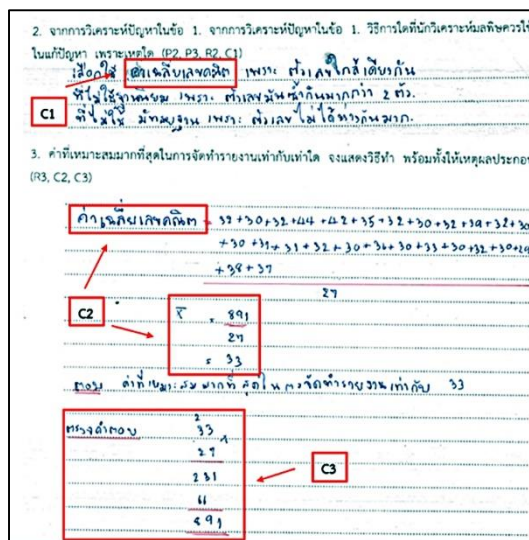 2. จากการวิเคราะห์ปัญหาในข้อ 1. จากการวิเคราะห์ปัญหาในข้อ 1. วิธีการใดที่นักวิเคราะห์มลพิษควรใช้
ในแก้ปัญหา เพราะเหตุใด (P2, P3, R2, C1)
เลือกใช้ ค่าเฉลี่ยเลขคณิต เพราะ ตัวเลขใกล้เคียงกัน
ที่ไม่ใช้ฐานนิยม เพราะ ตัวเลขมันซ้ำกันมากกว่า 2 ตัว.
C1
ที่ไม่ใช้ มัธยฐาน เพราะ ตัวเลขไม่ได้ห่างกันมาก.
3. ค่าที่เหมาะสมมากที่สุดในการจัดทำรายงานเท่ากับเท่าใด จงแสดงวิธีทำ พร้อมทั้งให้เหตุผลประกอบ
(R3, C2, C3)
ค่าเฉลี่ยเลขคณิต = 32+30+32+44+42+35+32+30+32+39+32+30
+30+31+31+32+30+36+30+33+30+32+30+29
+38+37
27
C2
x̄ = 891
27
= 33
ตอบ ค่าที่เหมาะสมมากที่สุดในการจัดทำรายงานเท่ากับ 33
2
ตรวจคำตอบ 33 ×
27
231
C3
66
891